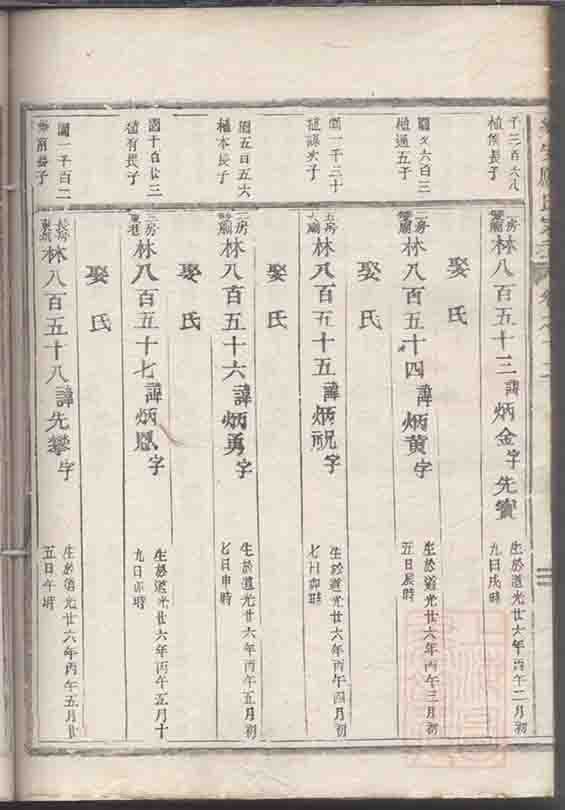 子三百六八
植候長子
三房
林八百五十三諱炳金字先寶
娶氏
生於道光廿六年丙午二月初
九日戌時
園又六百三
植通五子
三房
林八百五十四諱炳黄字
娶氏
生於道光廿六年丙午三月初
五日辰時
園一千三十
植謀次子
五房
林八百五十五諱炳祝字
娶氏
生於道光廿六年丙午四月初
七日卯時
園五百五六
植本長子
二房
林八百五十六諱炳勇字
娶氏
生於道光廿六年丙午五月初
七日申時
園十百廿三
植有長子
三房
林八百五十七諱炳恩字
娶氏
生於道光廿六年丙午五月十
九日亦時
園一千百二
長子
長房
林八百五十八諱先攀字
娶氏
生於道光廿六年丙午五月廿
五日午時